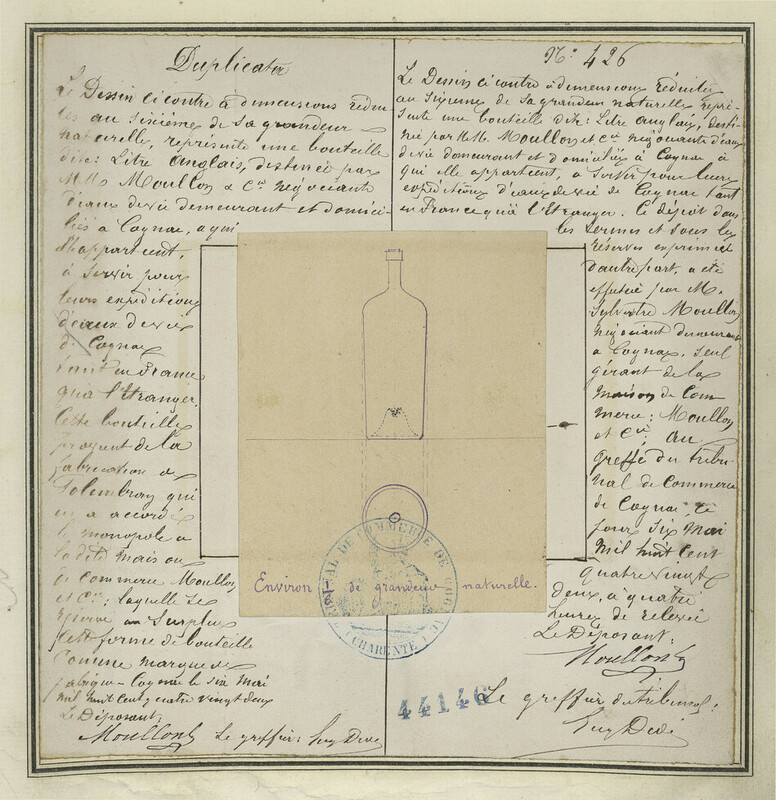 Duplicata
Le Dessin ci contre à dimensions rédui-
tes au sixième de sa grandeur
naturelle, représente une bouteille
dite: Litre Anglais, destinée par
M.M. Moullon & Cie négociants
d'eaux de vie demeurant et domici-
liés à Cognac, a qui
elle appartient,
à servir pour
leurs expéditions
d'eaux de vie
de Cognac
tant en France
qu'à l'Etranger.
Cette bouteille
provient de la
fabrication de
Folembray qui
en a accordé
le monopole à
la dite maison
de commerce Moullon
et Cie; laquelle se
réserve au surplus
cette forme de bouteille
comme marque de
fabrique - Cognac le six Mai
mil huit cent quatre vingt deux
Le Déposant:
Moullon
Le greffier:
No. 426
Le Dessin ci contre à dimensions réduites
au sixième de sa grandeur naturelle repré-
sente une bouteille dite: Litre Anglais, desti-
née par M.M. Moullon et Cie négociants d'eaux
de vie demeurant et domiciliés à Cognac à
qui elle appartient, a servir pour leurs
expéditions d'eaux de vie de Cognac tant
en France qu'à l'Etranger. Ce dépôt dans
les termes et sous les
réserves exprimées
d'autre part, a été
effectué par M.
Sylvestre Moullon
négociant demeurant
a Cognac, seul
gérant de la
maison de com-
merce: Moullon
et Cie. Au
greffe du tribu-
nal de Commerce
de Cognac, ce
jour six Mai
mil huit cent
quatre vingt
deux, à quatre
heures de relevée
Le Déposant:
Moullon
Le greffier du tribunal:
Environ 1/6 de grandeur naturelle.
TRIBUNAL DE COMMERCE DE COGNAC
(CHARENTE)
44146